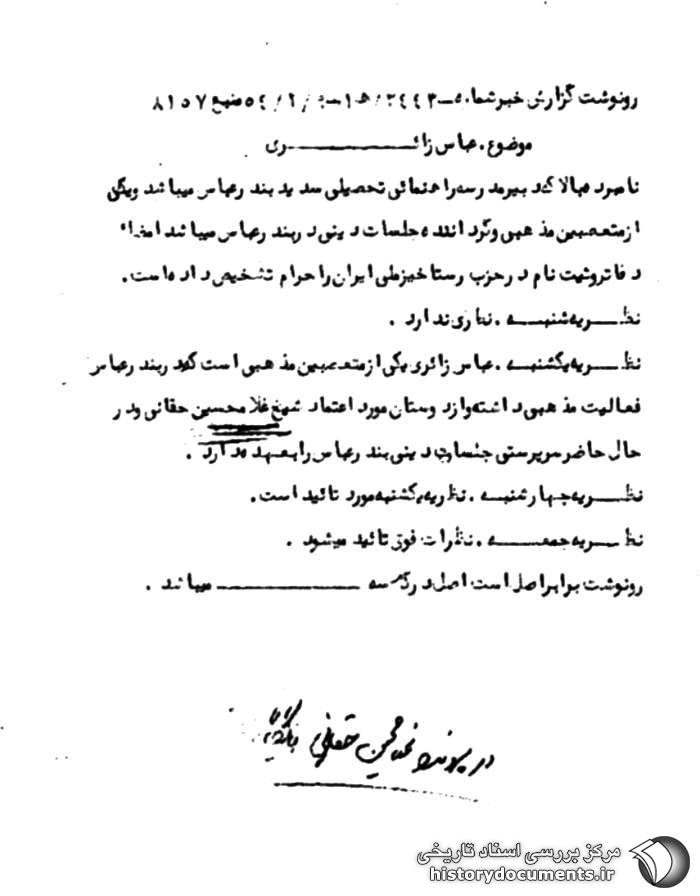 رونوشت گزارش خبر شماره ۵-۲۴۴۳/ه‍ ۱-۹/۲/۵۴ منبع ۸۱۵۷
موضوع . عباس زائــــــــــــری
نامبرده بالا که دبیر مدرسه راهنمائی تحصیلی سدید بندرعباس میباشد ویکی
از متعصبین مذهبی وگرداننده جلسات دینی در بندرعباس میباشد امضاء
دفاتر وثبت نام در حزب رستاخیز ملی ایران را حرام تشخیص داده است.
نظـــریه شنبـــه . نظری ندارد .
نظـــریه یکشنبـــه . عباس زائری یکی از متعصبین مذهبی است که در بندرعباس
فعالیت مذهبی داشته و از دوستان مورد اعتماد شیخ غلامحسین حقانی و در
حال حاضر سرپرستی جلسات دینی بندرعباس را بعهده دارد .
نظـــریه چهارشنبـــه . نظریه یکشنبه مورد تائید است.
نظـــریه جمعـــــه . نظرات فوق تائید میشود .
رونوشت برابر اصل است اصل در ــــــــــــ میباشد .
در پرونده حقانی بایگانی
مرکز بررسی اسناد تاریخی
historydocuments.ir